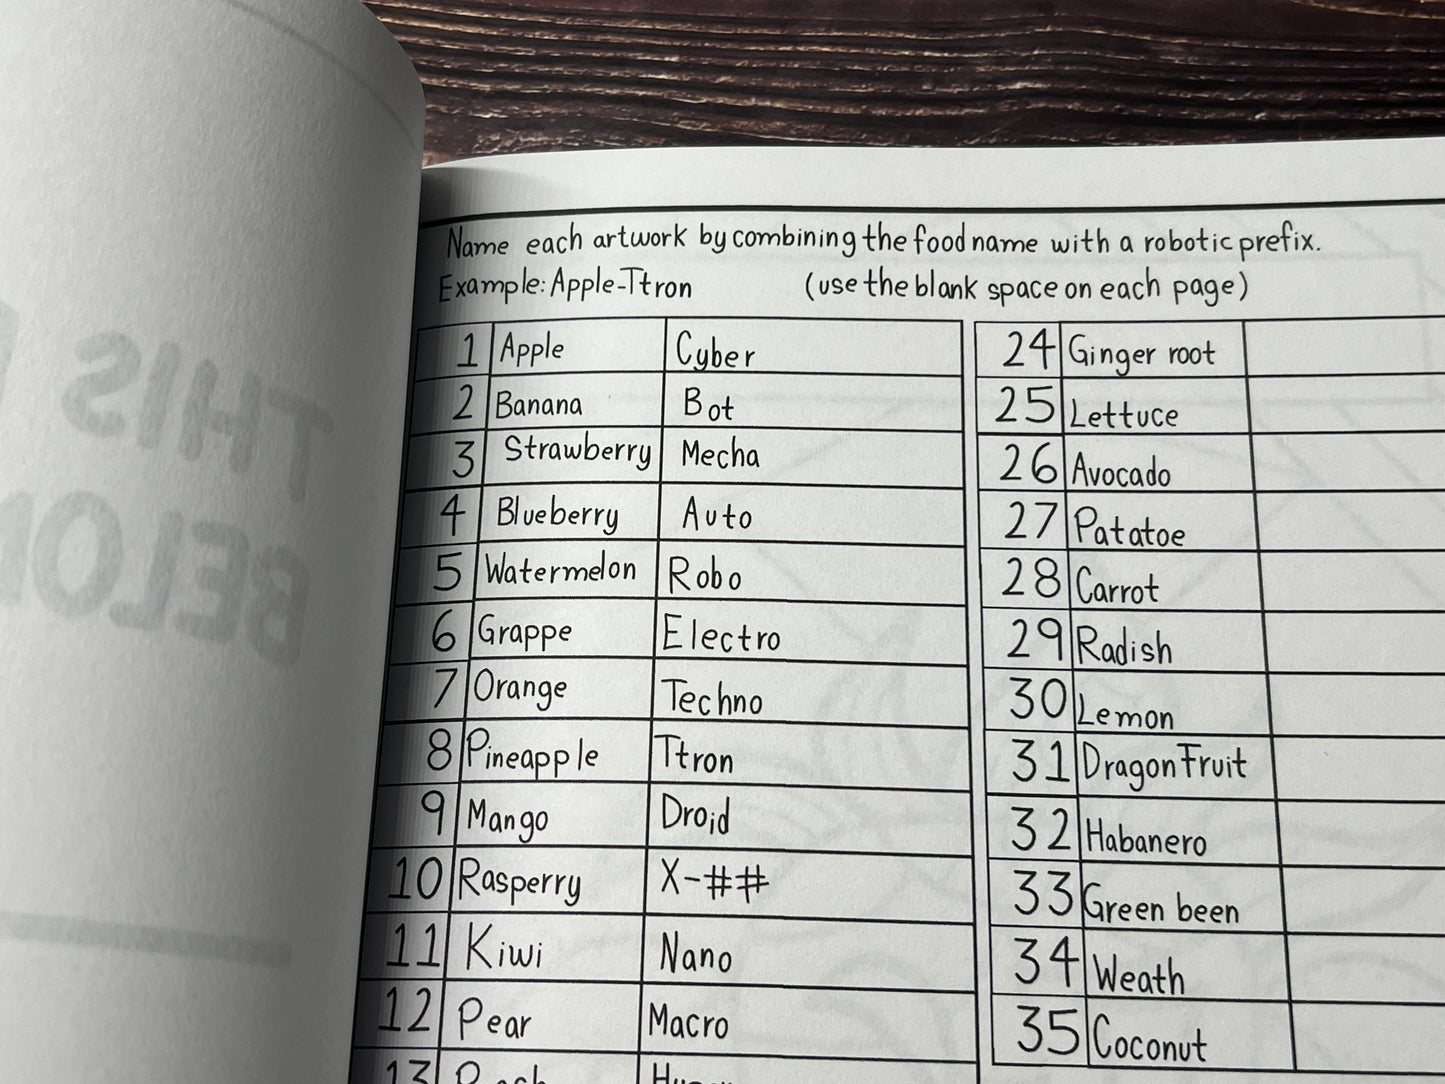 Name each artwork by combining the food name with a robotic prefix.
Example: Apple-Ttron (use the blank space on each page)
1 Apple Cyber
2 Banana Bot
3 Strawberry Mecha
4 Blueberry Auto
5 Watermelon Robo
6 Grappe Electro
7 Orange Techno
8 Pineapple Ttron
9 Mango Droid
10 Rasperry X-##
11 Kiwi Nano
12 Pear Macro
13
24 Ginger root
25 Lettuce
26 Avocado
27 Patatoe
28 Carrot
29 Radish
30 Lemon
31 Dragon Fruit
32 Habanero
33 Green been
34 Weath
35 Coconut
THIS